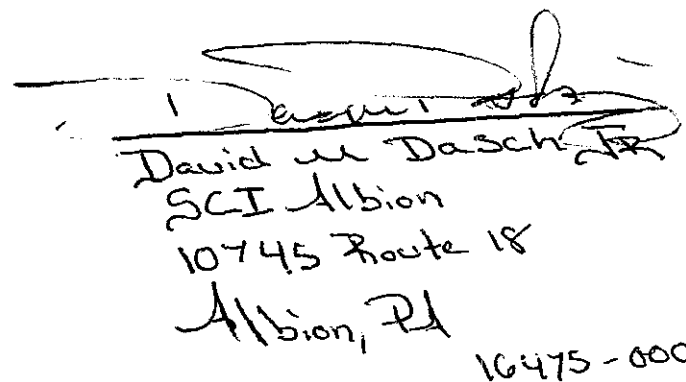 David M Dasch JR
SCI Albion
10745 Route 18
Albion, PA
16475-000